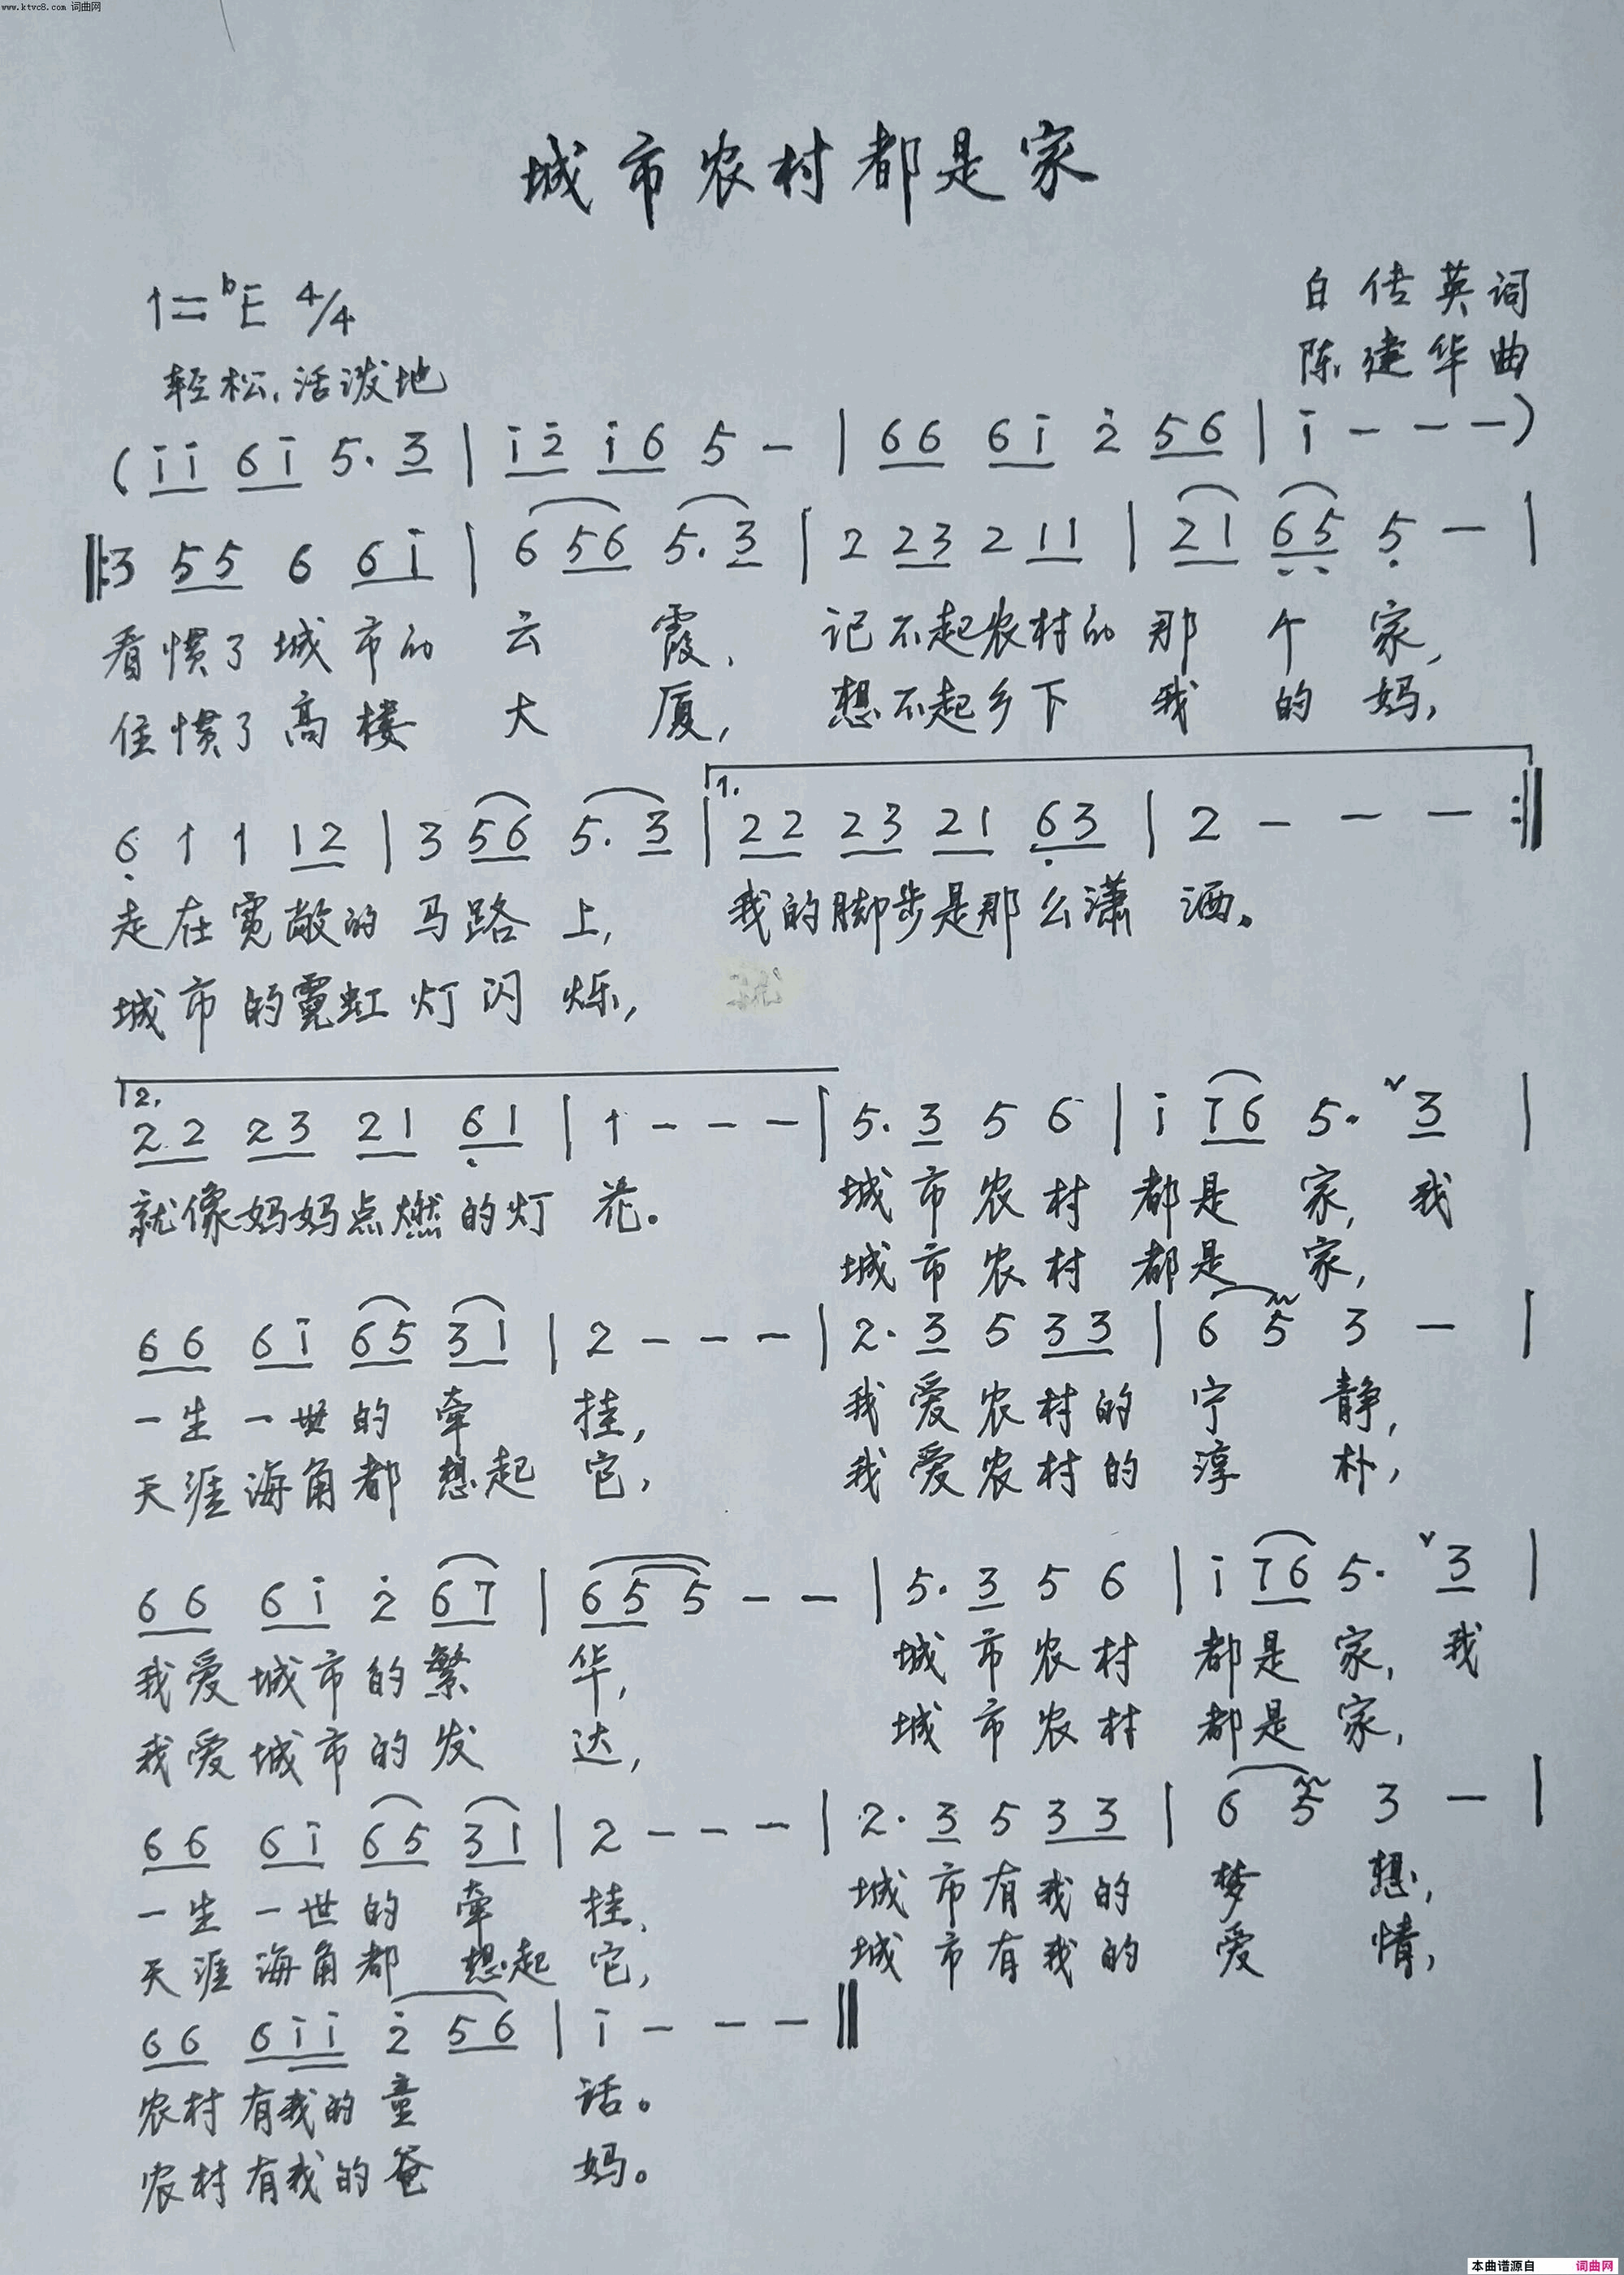 www.ktvc8.com 词曲网
城市农村都是家
1=ᵇE 4/4
白传英词
陈建华曲
轻松、活泼地
(i̇ i̇ 6 i̇ 5. 3 | i̇ 2̇ i̇ 6 5 - | 6 6 6 i̇ 2̇ 5 6 | i̇ - - -)
‖: 3 5 5 6 6 i̇ | 6 5 6 5. 3 | 2 2 3 2 1 1 | 2 1 6̣ 5̣ 5̣ - |
看惯了城市的云霞、记不起农村的那个家,
住惯了高楼大厦, 想不起乡下我的妈,
1.
6̣ 1 1 1 2 | 3 5 6 5. 3 | 2 2 2 3 2 1 6̣ 3 | 2 - - - :‖
走在宽敞的马路上, 我的脚步是那么潇洒。
城市的霓虹灯闪烁,
2.
2 2 2 3 2 1 6̣ 1 | 1 - - - | 5. 3 5 6 | i̇ 7 6 5. ᵛ3 |
就像妈妈点燃的灯花。 城市农村都是家, 我
城市农村都是家,
6 6 6 i̇ 6 5 3 1 | 2 - - - | 2. 3 5 3 3 | 6 5 3 - |
一生一世的牵挂, 我爱农村的宁静,
天涯海角都想起它, 我爱农村的淳朴,
6 6 6 i̇ 2̇ 6 7 | 6 5 5 - - | 5. 3 5 6 | i̇ 7 6 5. ᵛ3 |
我爱城市的繁华, 城市农村都是家, 我
我爱城市的发达, 城市农村都是家,
6 6 6 i̇ 6 5 3 1 | 2 - - - | 2. 3 5 3 3 | 6 5 3 - |
一生一世的牵挂、 城市有我的梦想,
天涯海角都想起它, 城市有我的爱情,
6 6 6 i̇ i̇ 2̇ 5 6 | i̇ - - - ‖
农村有我的童话。
农村有我的爸妈。
本曲谱源自 词曲网